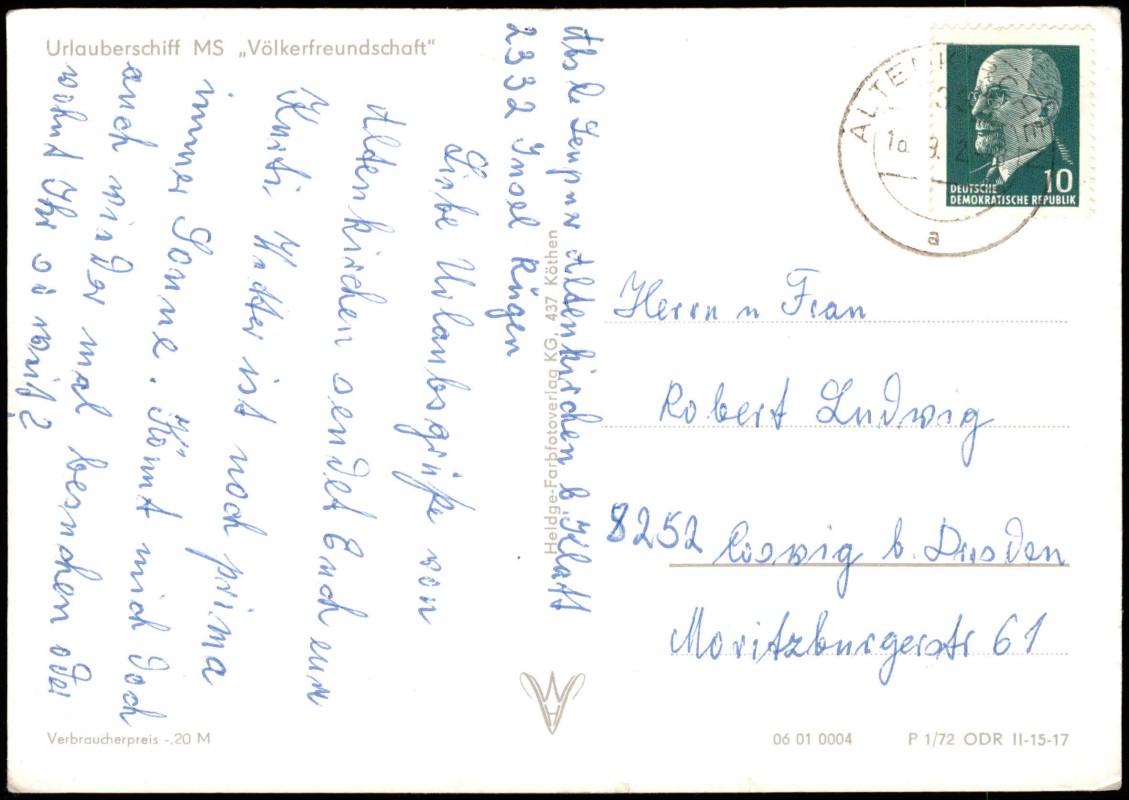 Urlauberschiff MS „Völkerfreundschaft“
Abs.
Altenkirchen b. Klatt
2332 Insel Rügen
Liebe Urlaubsgrüße von
Altenkirchen sendet Euch eure
Wetter ist noch prima
immer Sonne. Könnt mich doch
auch wieder mal besuchen oder
wohnt Ihr so weit?
Heldge-Farbfotoverlag KG, 437 Köthen
ALTENKIRCHEN
a
DEUTSCHE
DEMOKRATISCHE REPUBLIK
10
Herrn u Frau
Robert Ludwig
8252 Coswig b. Dresden
Moritzburgerstr 61
Verbraucherpreis -,20 M
06 01 0004
P 1/72 ODR II-15-17